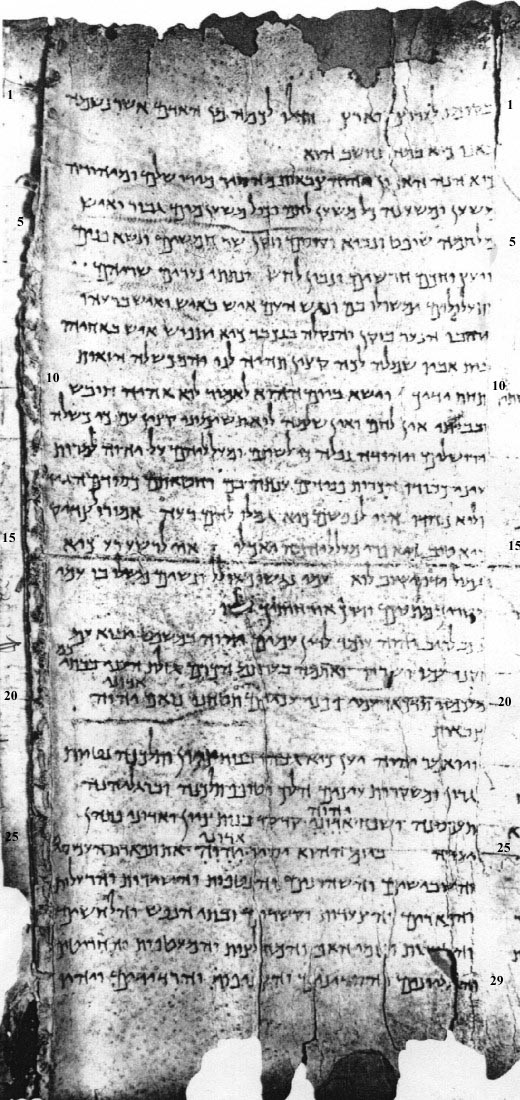 בקומו לערוץ הארץ חדלו לכמה מן האדם אשר נשמה
באפו כיא במה נחשב הוא
כיא הנה האדון יהוה צבאות מסיר מירושלים ומיהודה
משען ומשענה כל משען לחם וכול משען מים גבור ואיש
מלחמה שופט ונביא וקוסם וזקן שר חמשים ונשא פנים
ויועץ וחכם חרשים ונבון לחש ונתתי נערים שריהם
ותעלולים ימשולו בם ונגש העם איש באיש ואיש ברעהו
ירהבו הנער בזקן והנקלה בנכבד כיא יתפוש איש באחיהו
בית אביו שמלה לכה קצין תהיה לנו והמכשלה הזואת
תחת ידיך וישא ביום ההוא לאמור לוא אהיה חובש
ובביתי אין לחם ואין שמלה לוא תשימוני קצין עם כי כשלה
ירושלים ויהודה נפלה כי לשונם ומעלליהם על יהוה למרות
עיני כבודו הכרת פניהם ענתה בם וחטאתם כסודם הגידו
ולוא כחדו אוי לנפשם כיא גמלו להם רעה אמורו לצדיק
כיא טוב כיא פרי מעלליהמה יאכלו אוי לרשע רע כיא
גמול ידיו ישוב לוא עמי נגשו מעולל ונשים משלו בו עמי
מאשריך מתעים ודרך אורחותיך
נצב לריב יהוה ועומד לדין עמים יהוה במשפט יבוא עם
זקני עמו ושריו ואתמה בערתם הכרם גזלת העני בבתיכם
תדכאו עמי ופני עניים תטחנו נואם אדוני יהוה
צבאות
ויואמר יהוה יען כיא גבהו בנות ציון ותלכנה נטוות
גרון ומשקרות עינים הלוך וטופף תלכנה וברגליהנה
תעכסנה ושפח אדוני יהוה קדקד בנות ציון ואדוני פתהן
יערה ביום ההוא יסיר יהוה אדוני את תפארת העכסים
והשבישים והשהרנים והנטפות והשירות והרעלות
והפארים והצעדות והקשרים ובתי הנפש והלחשים
והטבעות ונזמי האף והמחלצות והמעטפות והחריטים
והגליונים והסדינים והצניפות והרדידים ויהיו